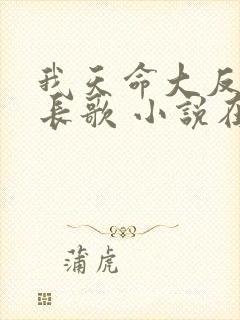 我天命大反
长歌 小说在
蒲虎